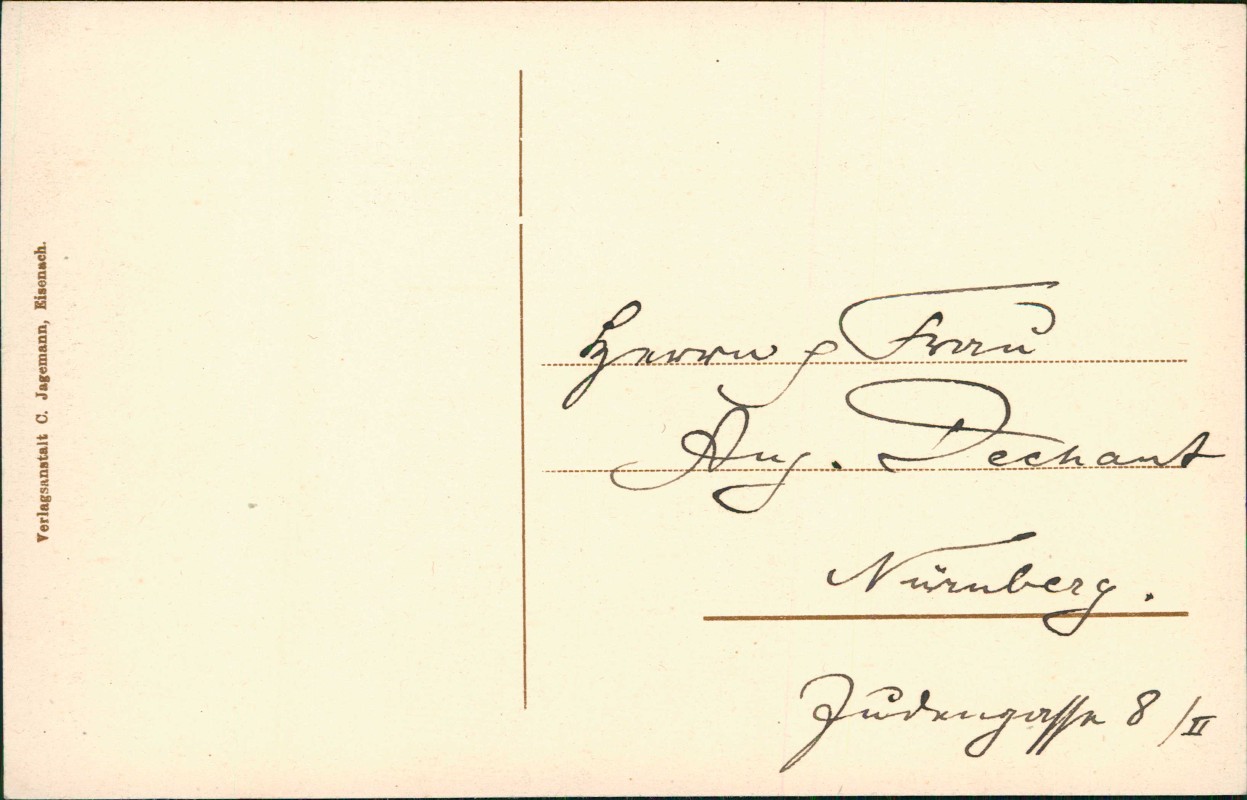 Verlagsanstalt C. Jagemann, Eisenach.
Herrn & Frau
Aug. Dechant
Nürnberg.
Judengasse 8/II